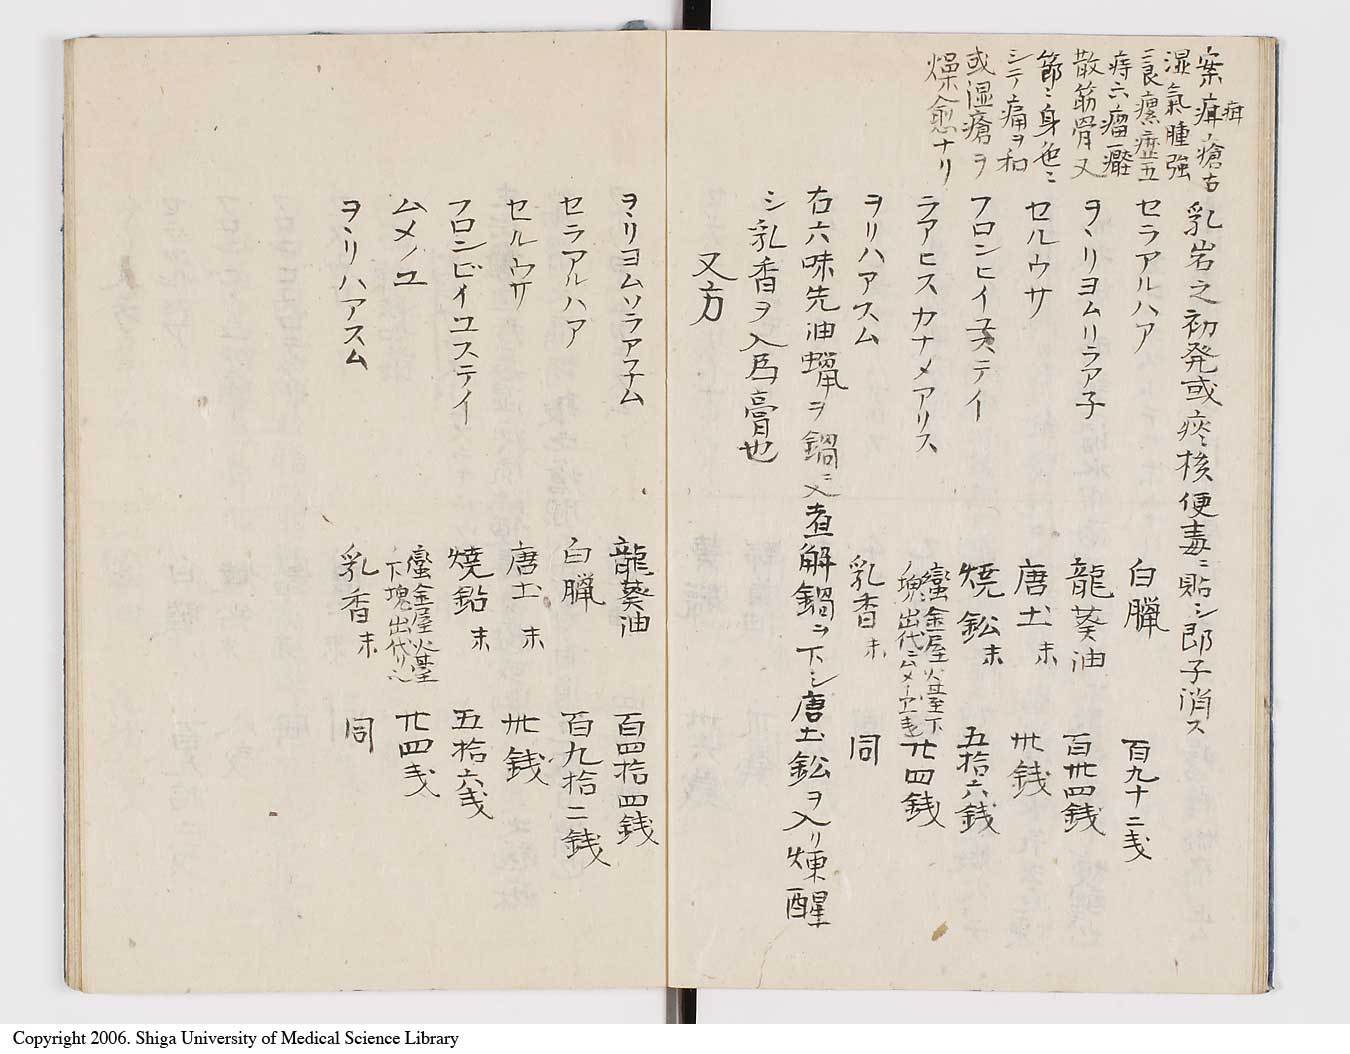 案疽瘡古
疽
湿氣腫強
艮瘰癧五
痔六瘤癰
散筋骨又
節ニ身色ニ
シテ痛ヲ和
或湿瘡ヲ
燥愈ナリ
乳岩之初発或痰核便毒ニ貼シ即子消ス
セラアルハア 白臘 百九十二戔
ヲヽリヨムリラア子 龍葵油 百卅四銭
セルウサ 唐土末 卅銭
フロンヒイユステイ 焼鈆末 五拾六銭
ラアヒスカナメアリス 蛮金屋火基下ノ塊出代ニムメ 廿四銭
ヲリハアスム 乳香末 同
右六味先油蠟ヲ鍋ニ入煮解鍋ヲ下シ唐土鈆ヲ入リ煉醒
シ乳香ヲ入為膏也
又方
ヲヽリヨムソラアチム 龍葵油 百四拾四銭
セラアルハア 白臘 百九拾二銭
セルウサ 唐土末 卅銭
フロンビイユステイ 焼鉛末 五拾六戔
ムメノユ 蛮金屋火基ノ下塊出代リ 廿四戔
ヲヽリハアスム 乳香末 同
Copyright 2006. Shiga University of Medical Science Library